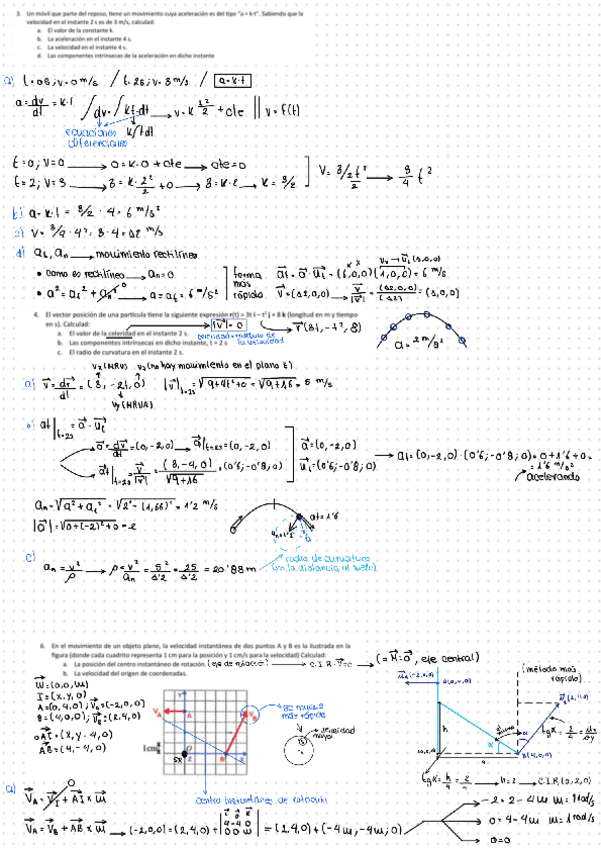 3. Un móvil que parte del reposo, tiene un movimiento cuya aceleración es del tipo "a = k·t". Sabiendo que la
velocidad en el instante 2 s es de 3 m/s, calculad:
a. El valor de la constante k.
b. La aceleración en el instante 4 s.
c. La velocidad en el instante 4 s.
d. Las componentes intrínsecas de la aceleración en dicho instante
a) t=0s; v=0 m/s / t=2s; v=3 m/s / a=k·t
a = dv/dt = k·t ∫dv = ∫kt·dt → v = k t²/2 + cte || v = f(t)
ecuaciones diferenciales k∫tdt
t=0; v=0 → 0=k·0+cte → cte=0
t=2; v=3 → 3=k·2²/2+0 → 3=k·2 → k=3/2
v = 3/2 t²/2 → 3/4 t²
b) a=k·t = 3/2 · 4 = 6 m/s²
c) v= 3/4·4² = 3·4=12 m/s
d) at, an → movimiento rectilíneo
• como es rectilíneo → an=0
• a²=at²+an² → a=at=6 m/s²
forma más rápido
4. El vector posición de una partícula tiene la siguiente expresión r(t) = 3t i – t² j + 8 k (longitud en m y tiempo
en s). Calcular:
a. El valor de la celeridad en el instante 2 s.
b. Las componentes intrínsecas en dicho instante, t = 2 s
c. El radio de curvatura en el instante 2 s.
r(3t, -t², 8)
a = 2 m/s²
(no hay movimiento en el plano z)
a) v = dr/dt = (3, -2t, 0) |v|t=2s = √9+4t²+0 = √9+16 = 5 m/s
Vy (MRUA)
b) at|t=2s = a · ut
a = dv/dt = (0,-2,0) → a t=2s = (0,-2,0)
ut|t=2s = v/|v| = (3,-4,0)/√9+16 = (0'6; -0'8; 0)
a=(0,-2,0)
ut=(0'6; -0'8; 0)
at=(0,-2,0)·(0'6; -0'8; 0)=0+1'6+0=
=1'6 m/s²
acelerando
|a| = √0+(-2)²+0 = 2
at=1'6
c) an = v²/ρ → ρ = v²/an = 5²/1'2 = 25/1'2 = 20'83 m
radio de curvatura
6. En el movimiento de un objeto plano, la velocidad instantánea de dos puntos A y B es la ilustrada en la
figura (donde cada cuadrito representa 1 cm para la posición y 1 cm/s para la velocidad) Calculad:
a. La posición del centro instantáneo de rotación. (eje de rotación) → C.I.R. V=0
b. La velocidad del origen de coordenadas.
eje central)
(método más rápido)
W=(0,0,w)
I=(x,y,0)
A=(0,4,0); VA=(-2,0,0)
B=(4,0,0); VB=(2,4,0)
AI=(x,y-4,0)
AB=(4,-4,0)
se mueve más rápido
velocidad mayor
centro instantáneo de rotación
B(4,0,0)
tgα = h/4 = 2/4 → h=2 → C.I.R (0,2,0)
a) VA = VI + AI x w
VA = VB + AB x w → (-2,0,0) = (2,4,0) + | 4 -4 0 / 0 0 w | = (2,4,0)+(-4w,-4w,0)
-2=2-4w w=1rad/s
0=4-4w w=1rad/s
0=0